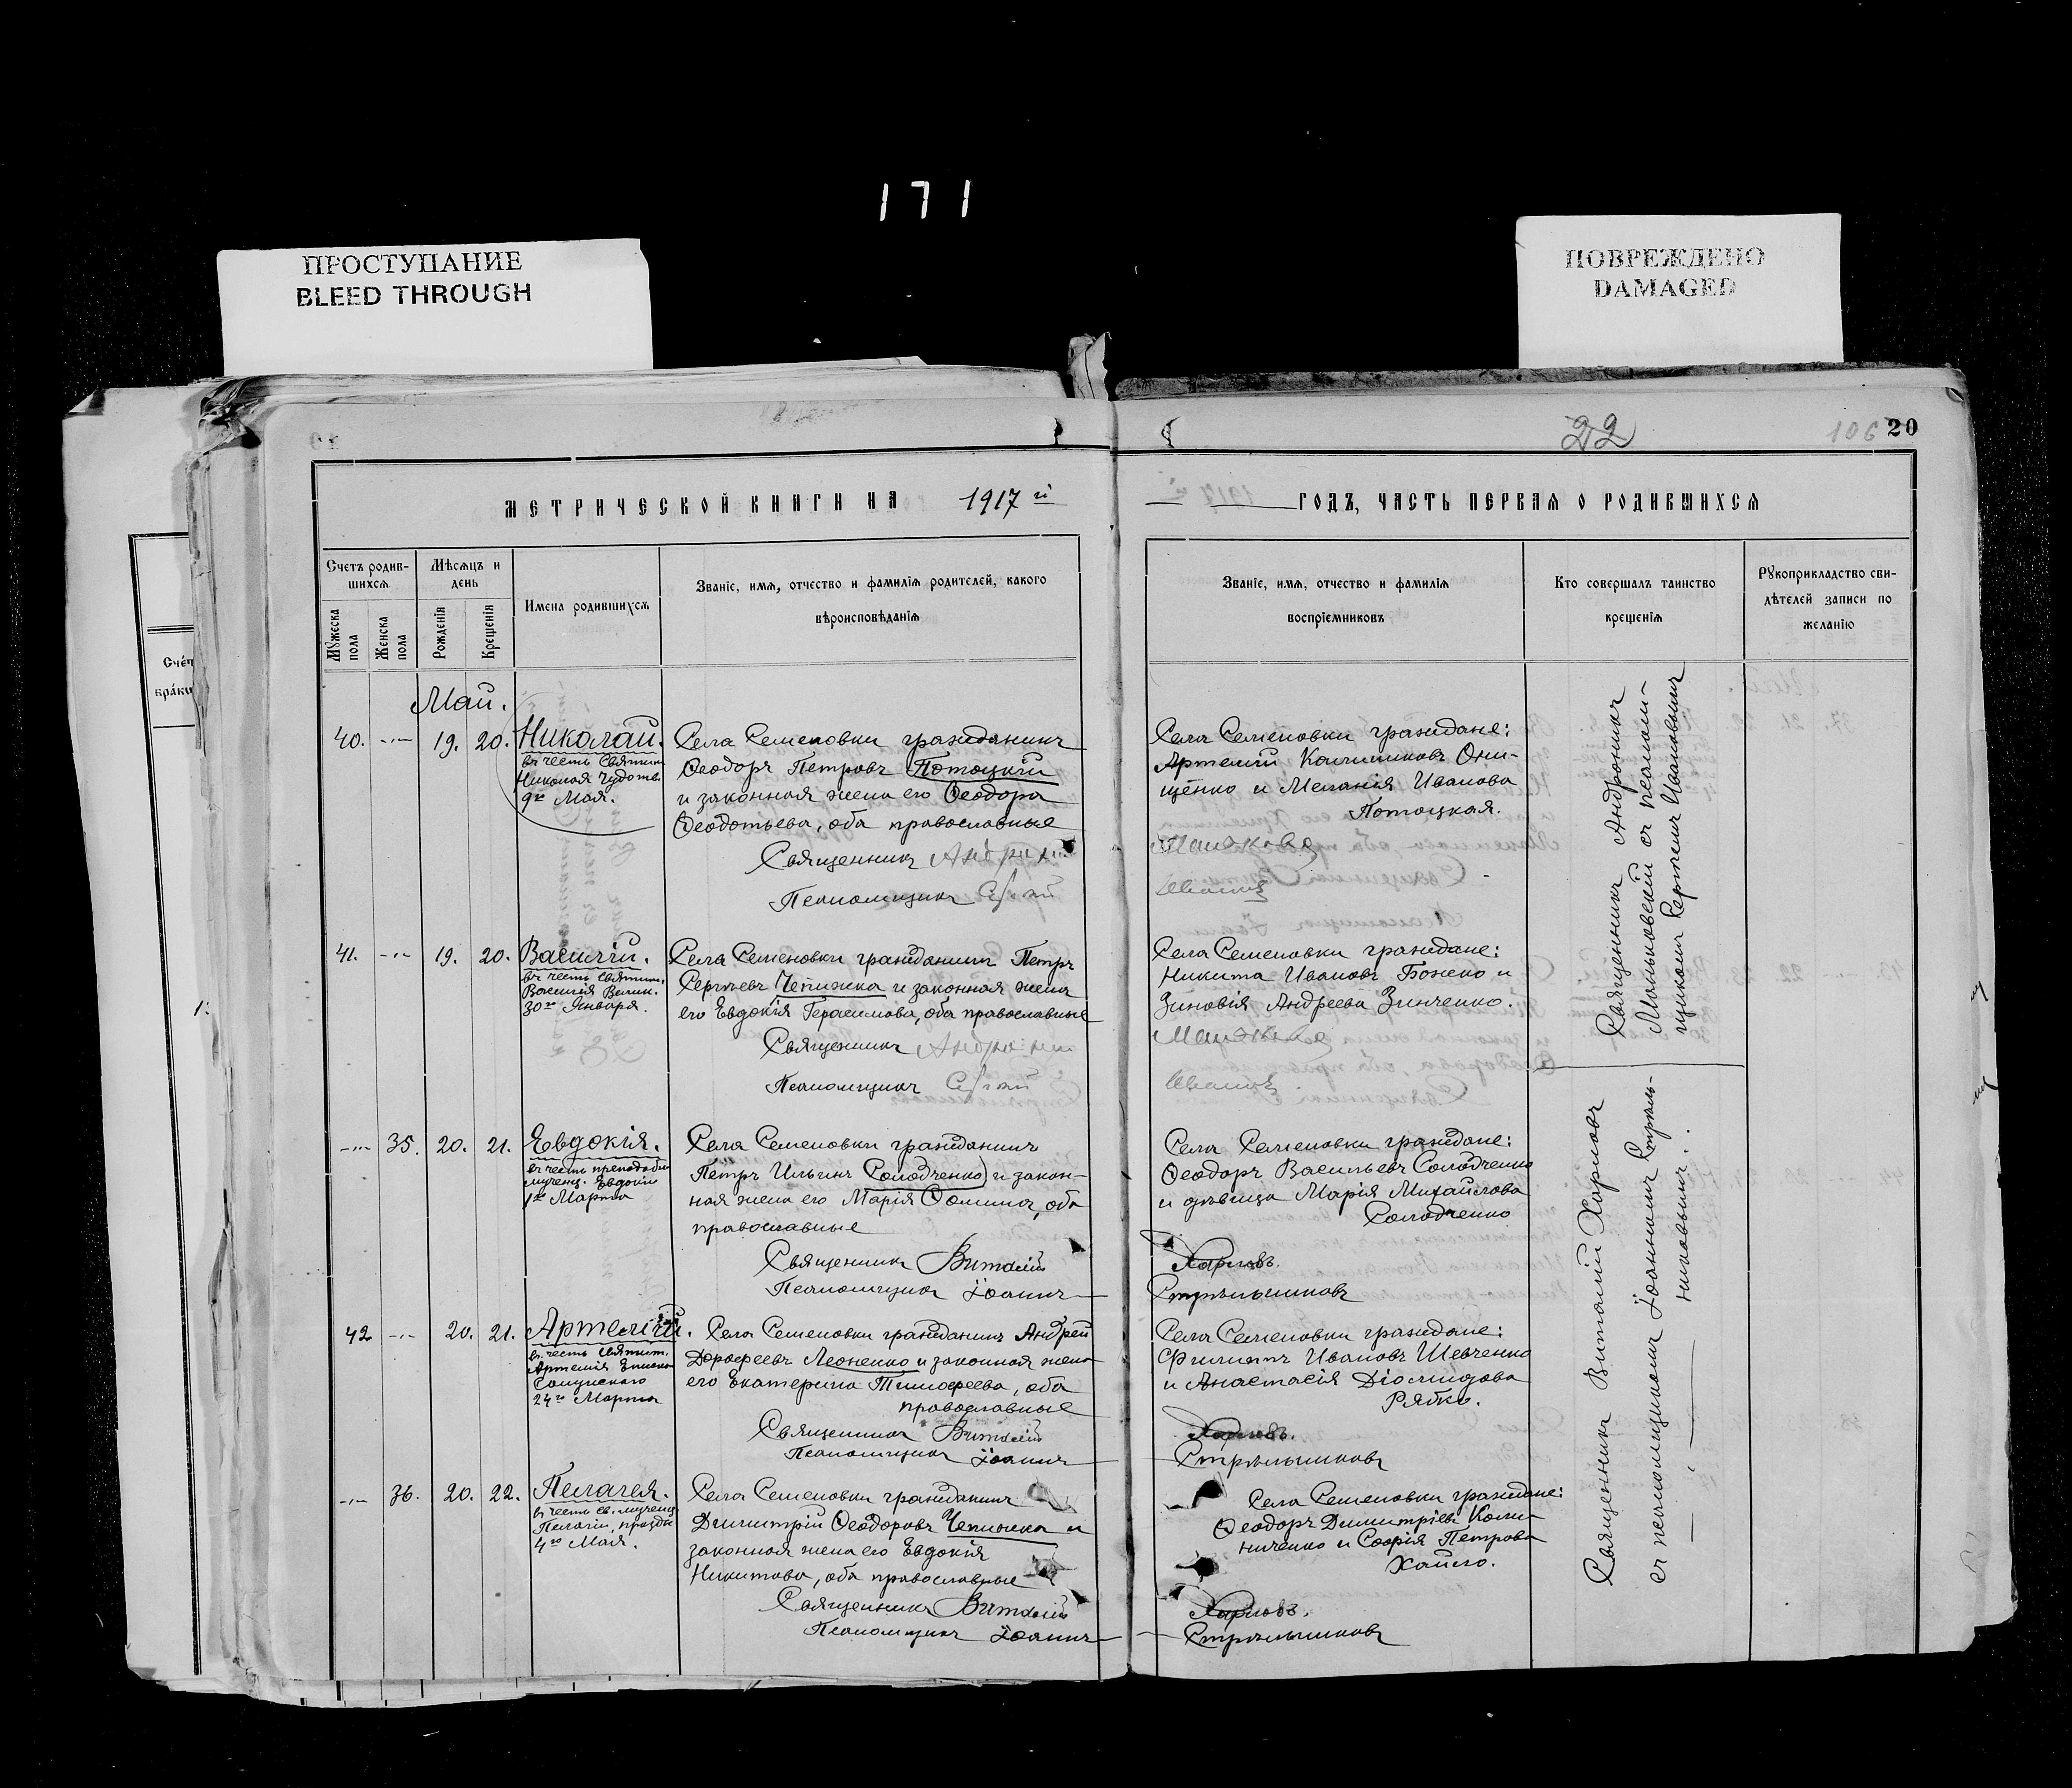 171
ПРОСТУПАНИЕ
BLEED THROUGH
ПОВРЕЖДЕНО
DAMAGED
22
106
20
МЕТРИЧЕСКОЙ КНИГИ НА 1917 й
ГОДЪ, ЧАСТЬ ПЕРВАЯ О РОДИВШИХСЯ
Счетъ родив-
шихся
Мѣсяцъ и
день
Мужеска
пола
Женска
пола
Рожденія
Крещенія
Имена родившихся
Званіе, имя, отчество и фамилія родителей, какого
вѣроисповѣданія
Званіе, имя, отчество и фамилія
воспріемниковъ
Кто совершалъ таинство
крещенія
Рукоприкладство сви-
дѣтелей записи по
желанію
Счет
браки
1.
Май.
40. 19. 20. Николай.
въ честь Святит.
Николая Чудотв.
9го Мая.
Села Семеновки гражданинъ
Ѳеодоръ Петровъ Потоцкій
и законная жена его Ѳеодора
Ѳеодотьева, оба православные
Священникъ
Псаломщикъ
Села Семеновки граждане:
Артемій Каллиниковъ Они-
щенко и Меланія Иванова
Потоцкая.
41. 19. 20. Василій.
въ честь Святит.
Василія Велик.
30го Января.
Села Семеновки гражданинъ Петръ
Сергѣевъ Чепижка и законная жена
его Евдокія Герасимова, оба православные
Священникъ
Псаломщикъ
Села Семеновки граждане:
Никита Ивановъ Божко и
Зиновія Андреева Зинченко.
35. 20. 21. Евдокія.
въ честь преподобн
мучениц. Евдокіи
1го Марта
Села Семеновки гражданинъ
Петръ Ильинъ Солодченко и закон-
ная жена его Марія Ѳомина, оба
православные
Священникъ Виталій
Псаломщикъ Іоаннъ
Села Семеновки граждане:
Ѳеодоръ Васильевъ Солодченко
и дѣвица Марія Михайлова
Солодченко
Харловъ.
Стрѣльниковъ
42 20. 21. Артемій.
въ честь Святит.
Артемія Епископа
Солунскаго
24го Марта
Села Семеновки гражданинъ Андрей
Дороѳеевъ Леоненко и законная жена
его Екатерина Тимоѳеева, оба
православные
Священникъ Виталій
Псаломщикъ Іоаннъ
Села Семеновки граждане:
Филиппъ Ивановъ Шевченко
и Анастасія Діомидова
Рябко.
Харловъ.
Стрѣльниковъ
36. 20. 22. Пелагея.
въ честь св. мучениц
Пелагіи, праздн
4го Мая.
Села Семеновки гражданинъ
Димитрій Ѳеодоровъ Чепижка и
законная жена его Евдокія
Никитова, оба православные
Священникъ Виталій
Псаломщикъ Іоаннъ
Села Семеновки граждане:
Ѳеодоръ Димитріевъ Кали-
ниченко и Софія Петрова
Хайло.
Харловъ.
Стрѣльниковъ
Священникъ Андроникъ
Маньковскій съ псалом-
щикомъ Сергіемъ Ивановымъ
Священникъ Виталій Харловъ
съ псаломщикомъ Іоанномъ Стрѣль-
никовымъ.